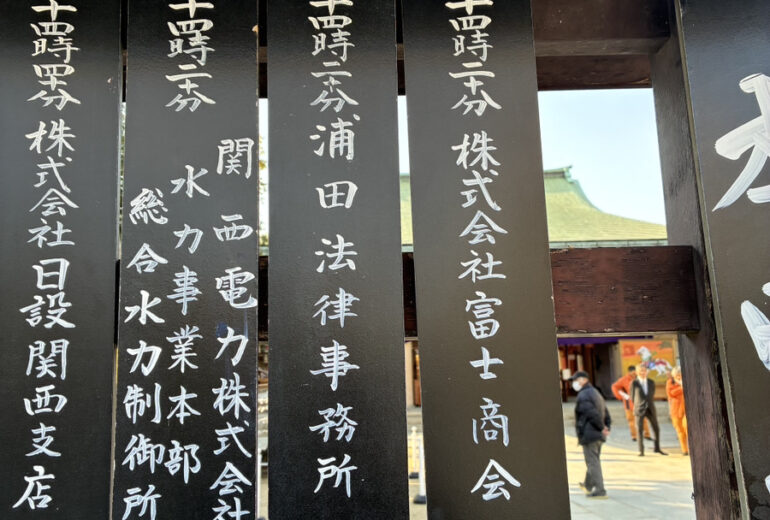 十四時二十分 株式会社富士商会
十四時二十分 浦田法律事務所
十四時二十分 関西電力株式会社
水力事業本部
総合水力制御所
十四時四十分 株式会社日設関西支店